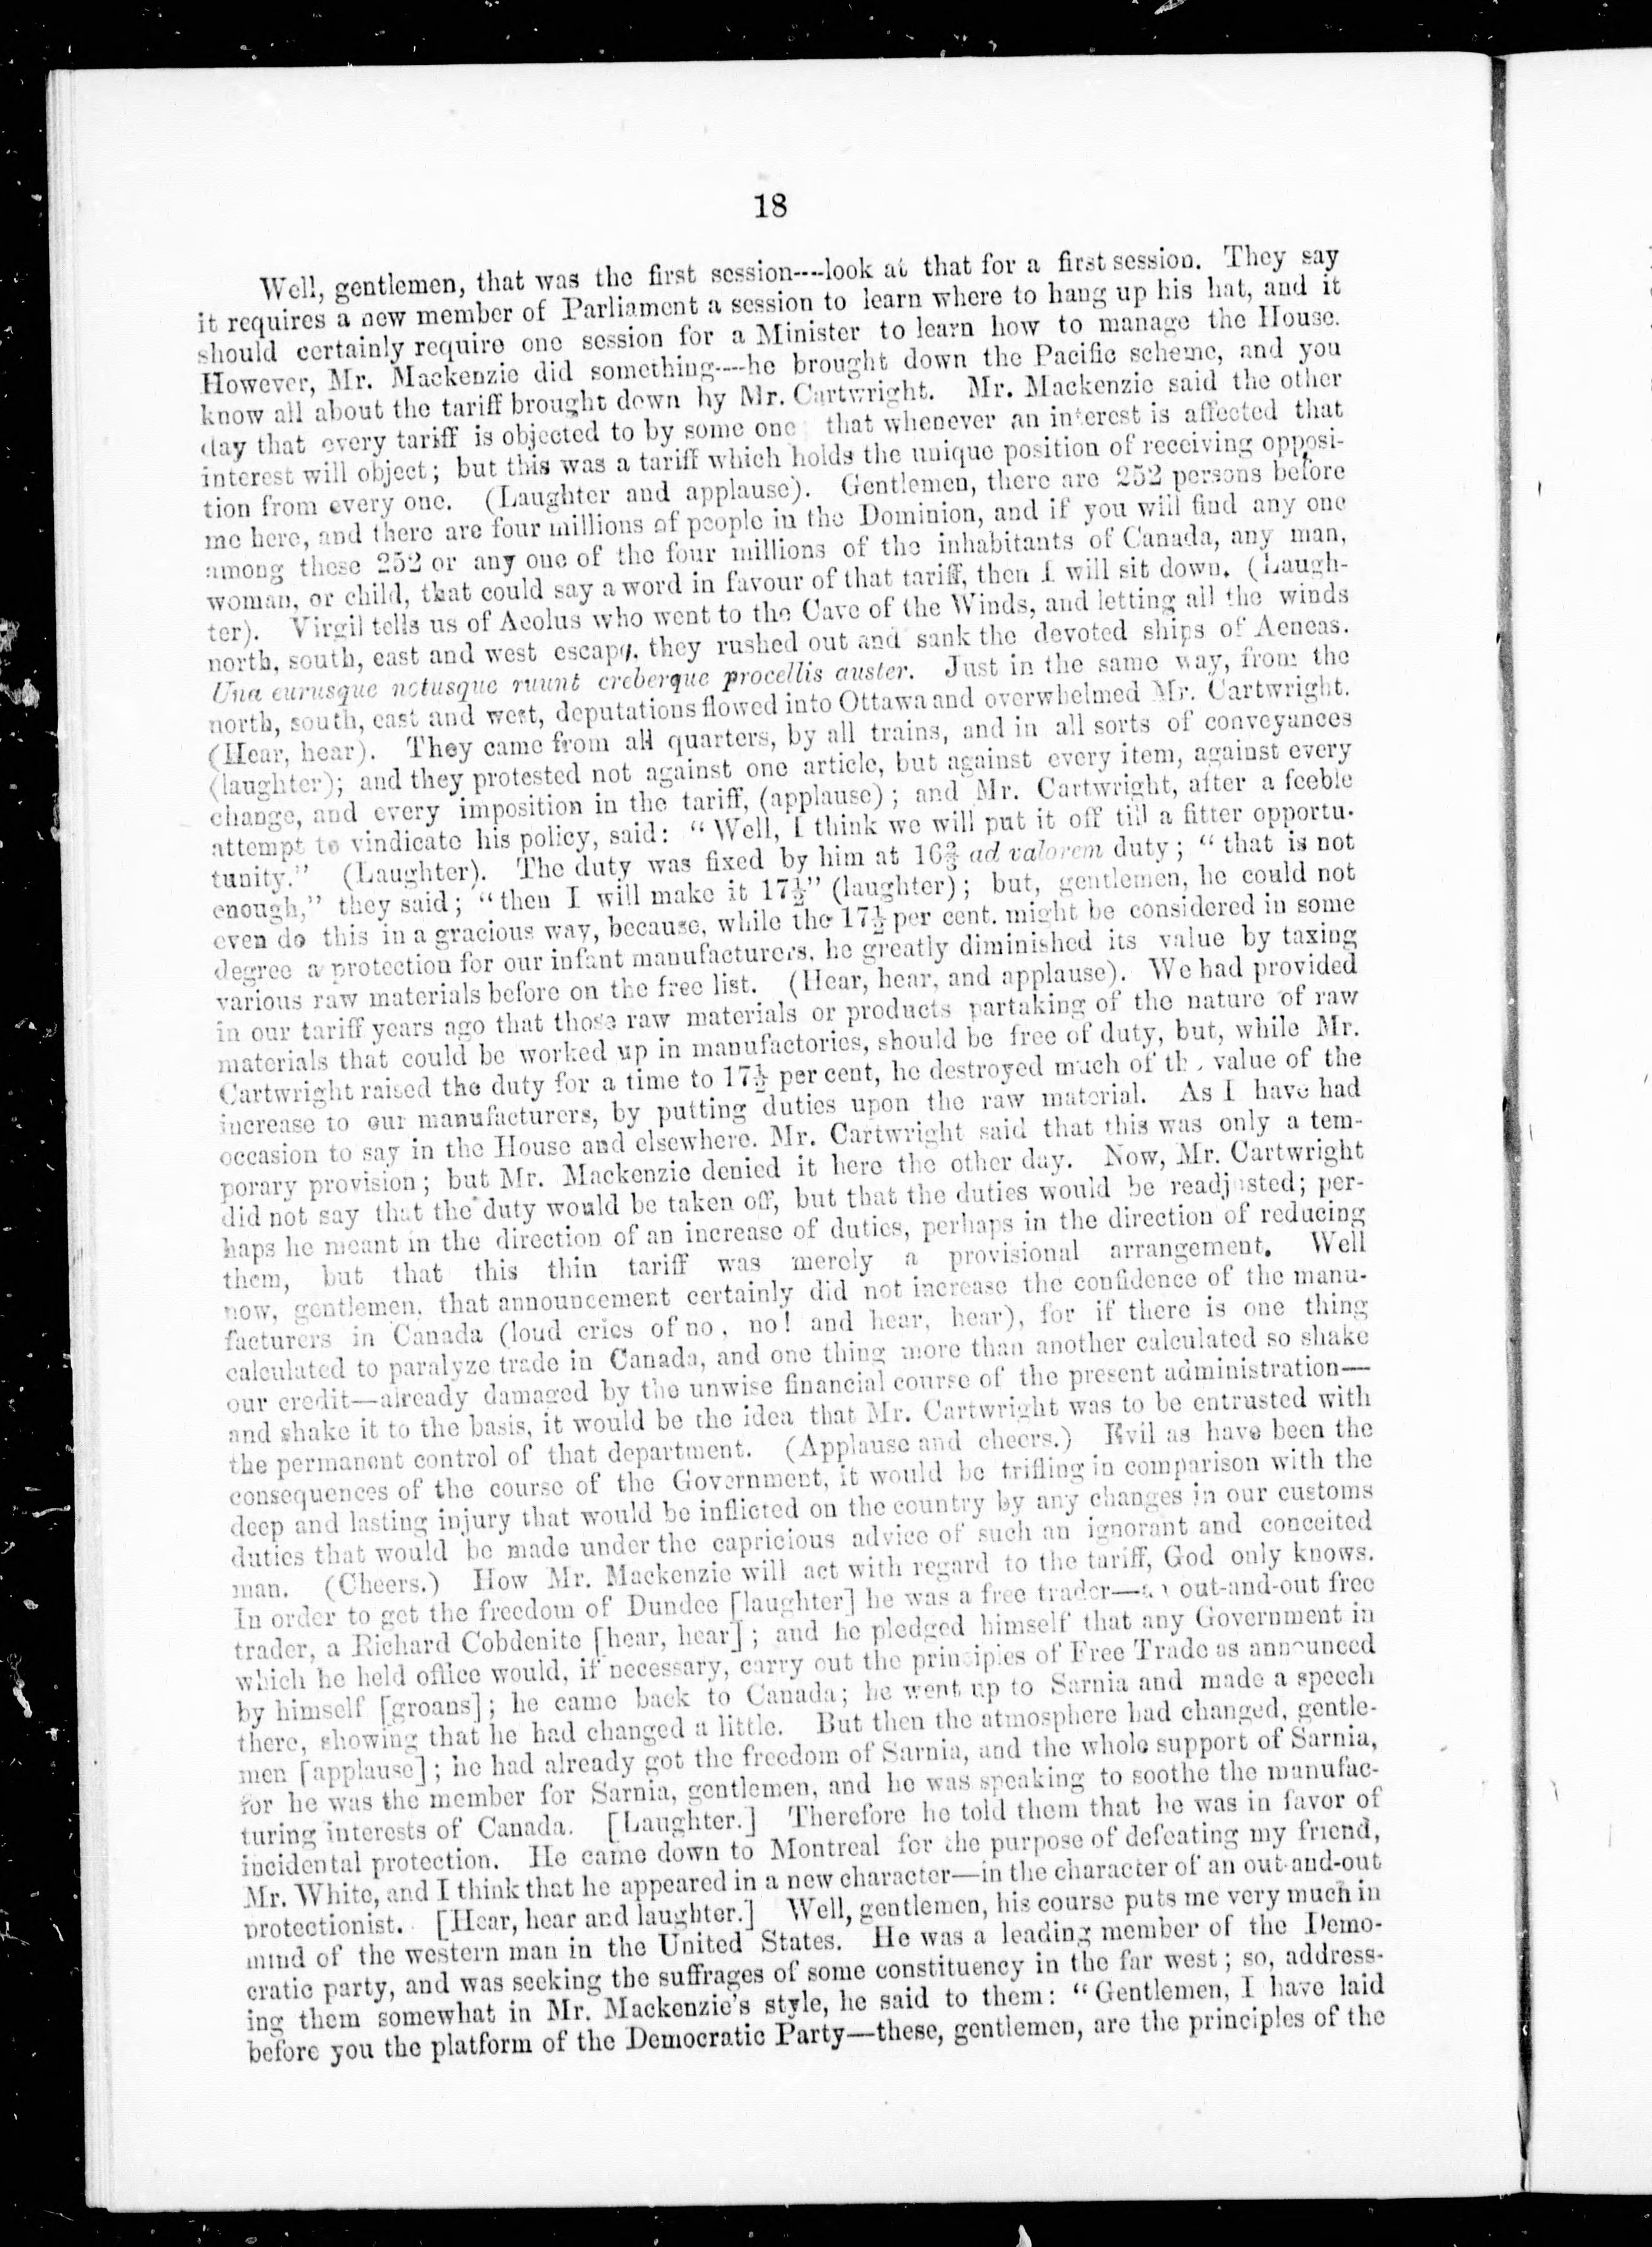 18
Well, gentlemen, that was the first session----look at that for a first session. They say
it requires a new member of Parliament a session to learn where to hang up his hat, and it
should certainly require one session for a Minister to learn how to manage the House.
However, Mr. Mackenzie did something----he brought down the Pacific scheme, and you
know all about the tariff brought down by Mr. Cartwright. Mr. Mackenzie said the other
day that every tariff is objected to by some one that whenever an interest is affected that
interest will object; but this was a tariff which holds the unique position of receiving opposi-
tion from every one. (Laughter and applause). Gentlemen, there are 252 persons before
me here, and there are four millions of people in the Dominion, and if you will find any one
among these 252 or any one of the four millions of the inhabitants of Canada, any man,
woman, or child, that could say a word in favour of that tariff, then I will sit down. (Laugh-
ter). Virgil tells us of Aeolus who went to the Cave of the Winds, and letting all the winds
north, south, east and west escape, they rushed out and sank the devoted ships of Aeneas.
Una eurusque notusque ruunt creberque procellis auster. Just in the same way, from the
north, south, east and west, deputations flowed into Ottawa and overwhelmed Mr. Cartwright.
(Hear, hear). They came from all quarters, by all trains, and in all sorts of conveyances
(laughter); and they protested not against one article, but against every item, against every
change, and every imposition in the tariff, (applause); and Mr. Cartwright, after a feeble
attempt to vindicate his policy, said: "Well, I think we will put it off till a fitter opportu-
tunity." (Laughter). The duty was fixed by him at 16⅔ ad valorem duty; "that is not
enough," they said; "then I will make it 17½" (laughter); but, gentlemen, he could not
even do this in a gracious way, because, while the 17½ per cent. might be considered in some
degree a protection for our infant manufacturers, he greatly diminished its value by taxing
various raw materials before on the free list. (Hear, hear, and applause). We had provided
in our tariff years ago that those raw materials or products partaking of the nature of raw
materials that could be worked up in manufactories, should be free of duty, but, while Mr.
Cartwright raised the duty for a time to 17½ per cent, he destroyed much of the value of the
increase to our manufacturers, by putting duties upon the raw material. As I have had
occasion to say in the House and elsewhere. Mr. Cartwright said that this was only a tem-
porary provision; but Mr. Mackenzie denied it here the other day. Now, Mr. Cartwright
did not say that the duty would be taken off, but that the duties would be readjusted; per-
haps he meant in the direction of an increase of duties, perhaps in the direction of reducing
them, but that this thin tariff was merely a provisional arrangement. Well
now, gentlemen, that announcement certainly did not increase the confidence of the manu-
facturers in Canada (loud cries of no, no! and hear, hear), for if there is one thing
calculated to paralyze trade in Canada, and one thing more than another calculated so shake
our credit—already damaged by the unwise financial course of the present administration—
and shake it to the basis, it would be the idea that Mr. Cartwright was to be entrusted with
the permanent control of that department. (Applause and cheers.) Evil as have been the
consequences of the course of the Government, it would be trifling in comparison with the
deep and lasting injury that would be inflicted on the country by any changes in our customs
duties that would be made under the capricious advice of such an ignorant and conceited
man. (Cheers.) How Mr. Mackenzie will act with regard to the tariff, God only knows.
In order to get the freedom of Dundee [laughter] he was a free trader—an out-and-out free
trader, a Richard Cobdenite [hear, hear]; and he pledged himself that any Government in
which he held office would, if necessary, carry out the principles of Free Trade as announced
by himself [groans]; he came back to Canada; he went up to Sarnia and made a speech
there, showing that he had changed a little. But then the atmosphere had changed, gentle-
men [applause]; he had already got the freedom of Sarnia, and the whole support of Sarnia,
for he was the member for Sarnia, gentlemen, and he was speaking to soothe the manufac-
turing interests of Canada. [Laughter.] Therefore he told them that he was in favor of
incidental protection. He came down to Montreal for the purpose of defeating my friend,
Mr. White, and I think that he appeared in a new character—in the character of an out-and-out
protectionist. [Hear, hear and laughter.] Well, gentlemen, his course puts me very much in
mind of the western man in the United States. He was a leading member of the Demo-
cratic party, and was seeking the suffrages of some constituency in the far west; so, address-
ing them somewhat in Mr. Mackenzie's style, he said to them: "Gentlemen, I have laid
before you the platform of the Democratic Party—these, gentlemen, are the principles of the